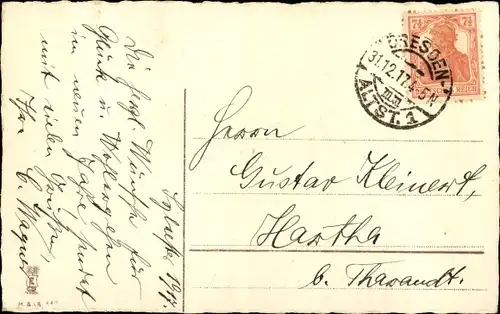 Sylvester 1917.
Die herzl. Wünsche für
Glück u. Wohlergehen
im neuen Jahre sendet
mit vielen Grüßen,
Ihr
C. Wagner
7½ 7½
DRESDEN-
31.12.17.4-5N.
ALTST. 1
REICH
Herrn
Gustav Kleinert,
Hartha
b. Tharandt.